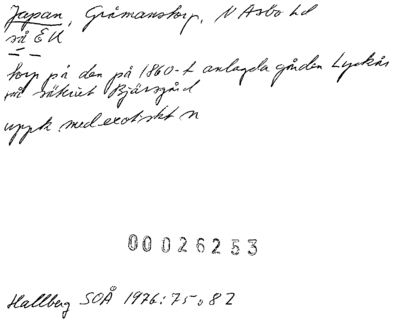 Japan, Gråmanstorp, N Åsbo hd
så EK
torp på den på 1860-t anlagda gården Lyckås
säkert Bjärsgård
uppk. med exotiskt n
00026253
Hallberg SOÅ 1976:75 o 82